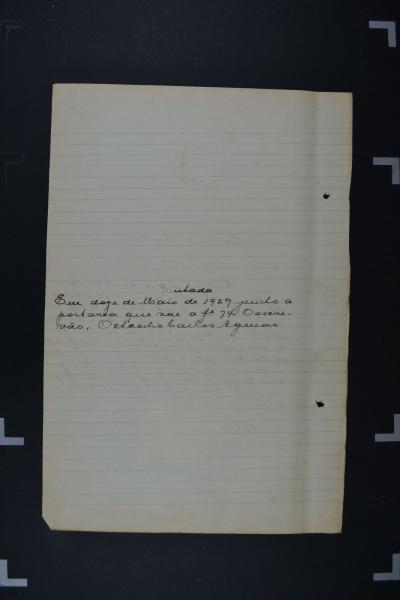 Juntada
Em doze de Maio de 1929 junto a
portaria que vae a fs 74. O escri-
vão, Octacilio Carlos Aguiar